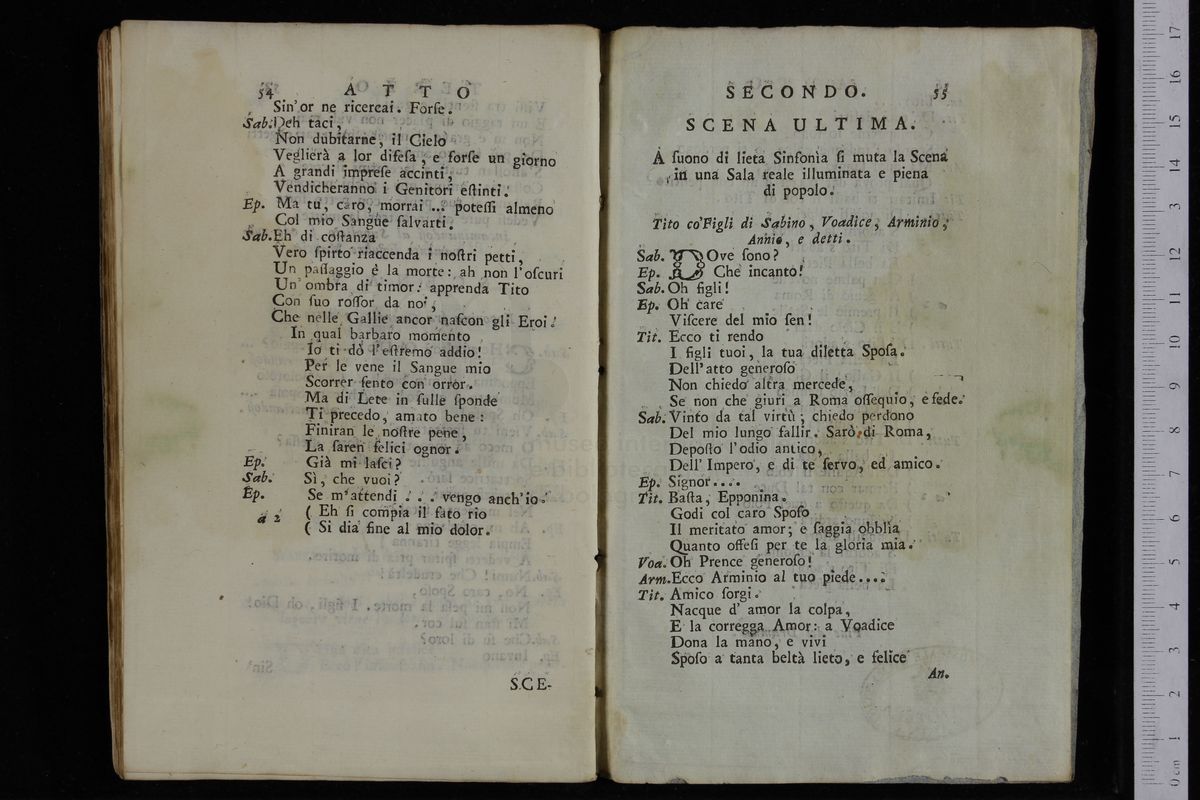 54 A T T O
Sin' or ne ricercai. Forſe.
Sab. Deh taci,
Non dubitarne, il Cielo
Veglierà a lor difeſa, e forſe un giorno
A grandi impreſe accinti,
Vendicheranno i Genitori eſtinti.
Ep. Ma tu, caro, morrai ... poteſſi almeno
Col mio Sangue ſalvarti.
Sab. Eh di coſtanza
Vero ſpirto riaccenda i noſtri petti,
Un paſſaggio è la morte: ah non l'oſcuri
Un' ombra di timor: apprenda Tito
Con ſuo roſſor da noi,
Che nelle Gallie ancor naſcon gli Eroi.
In qual barbaro momento
Io ti dò l'eſtremo addio!
Per le vene il Sangue mio
Scorrer ſento con orror.
Ma di Lete in ſulle ſponde
Ti precedo, amato bene:
Finiran le noſtre pene,
La ſaren felici ognor.
Ep. Già mi laſci?
Sab. Sì, che vuoi?
Ep. Se m'attendi ... vengo anch'io.
a 2 ( Eh ſi compia il fato rio
( Si dia fine al mio dolor.
SCE-
SECONDO. 55
SCENA ULTIMA.
A ſuono di lieta Sinfonìa ſi muta la Scena
in una Sala reale illuminata e piena
di popolo.
Tito co'Figli di Sabino, Voadice, Arminio,
Annio, e detti.
Sab. DOve ſono?
Ep. Che incanto!
Sab. Oh figli!
Ep. Oh care
Viſcere del mio ſen!
Tit. Ecco ti rendo
I figli tuoi, la tua diletta Spoſa.
Dell' atto generoſo
Non chiedo altra mercede,
Se non che giuri a Roma oſſequio, e fede.
Sab. Vinto da tal virtù; chiedo perdono
Del mio lungo fallir. Sarò di Roma,
Depoſto l'odio antico,
Dell' Impero, e di te ſervo, ed amico.
Ep. Signor....
Tit. Baſta, Epponina.
Godi col caro Spoſo
Il meritato amor; e ſaggia obblìa
Quanto offeſi per te la gloria mia.
Voa. Oh Prence generoſo!
Arm. Ecco Arminio al tuo piede....
Tit. Amico ſorgi.
Nacque d' amor la colpa,
E la corregga Amor: a Voadice
Dona la mano, e vivi
Spoſo a tanta beltà lieto, e felice
An.